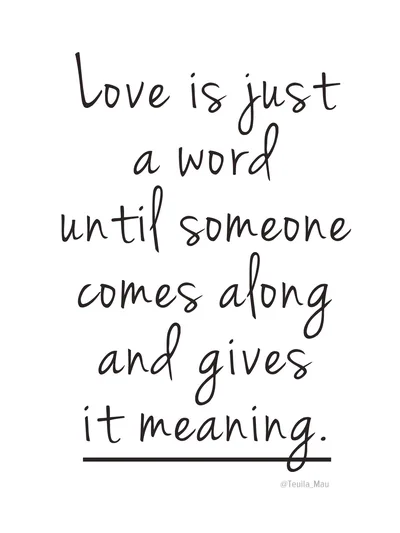 Love is just
a word
until someone
comes along
and gives
it meaning.
@Teulla_Mau